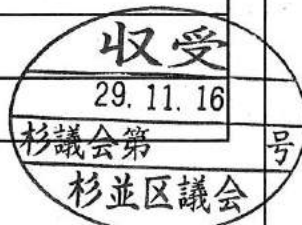 収受
29.11.16
杉議会第 号
杉並区議会